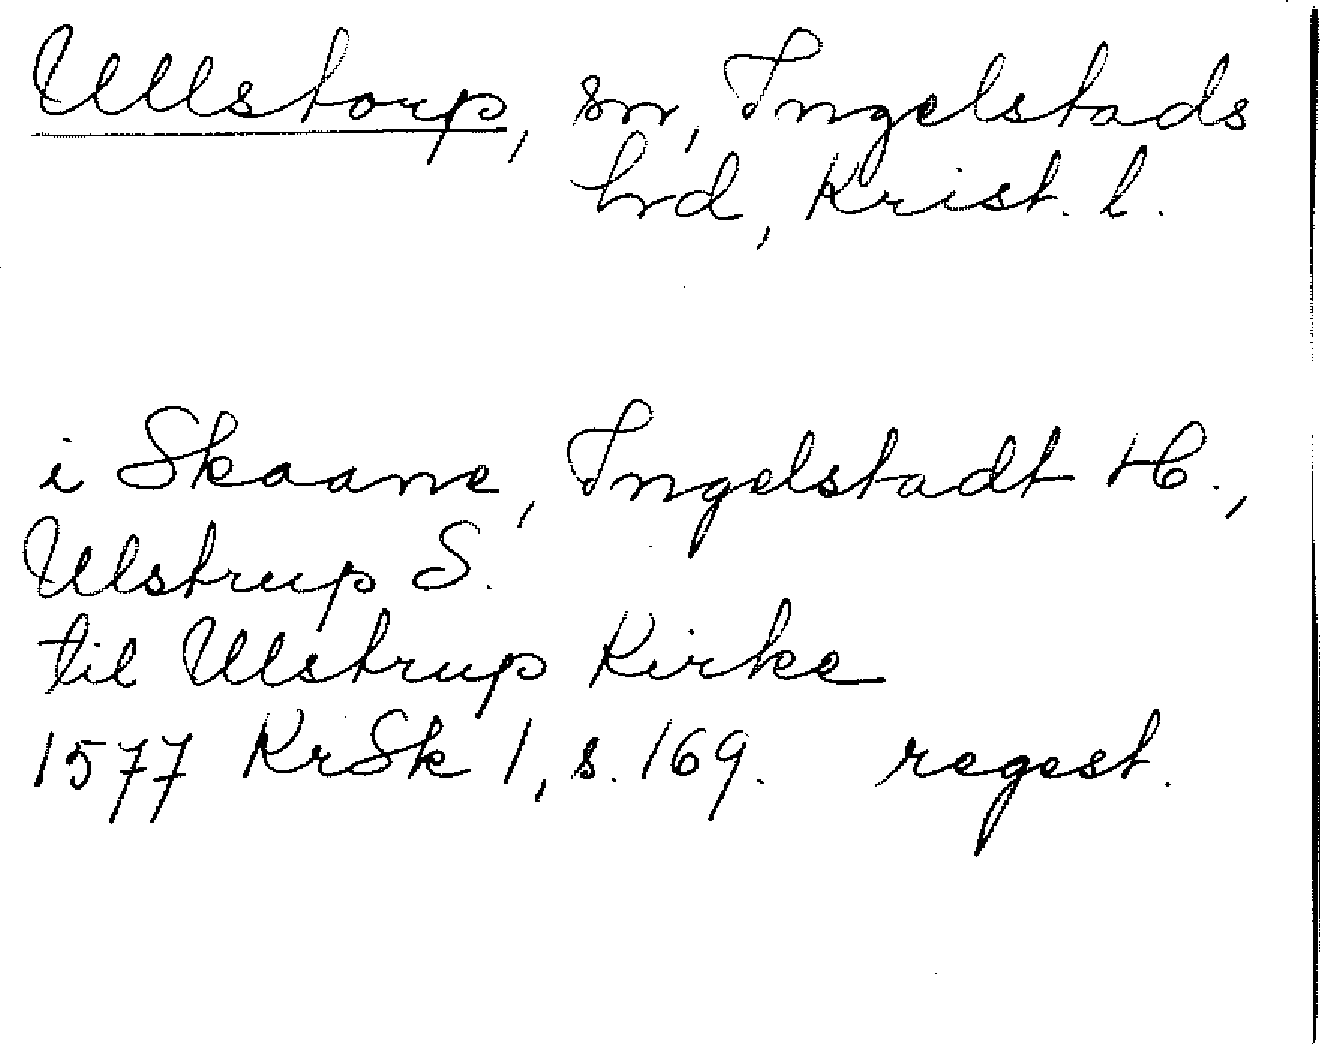 Ullstorp, sn, Ingelstads
hrd, Krist. l.
i Skaane, Ingelstadt H.,
Ulstrup S.
til Ulstrup Kirke
1577 KrSk 1, s. 169. regest.